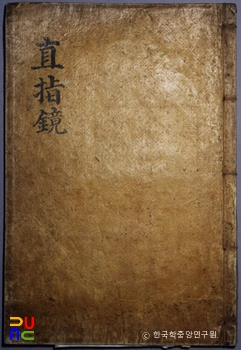 直指鏡
© 한국학중앙연구원